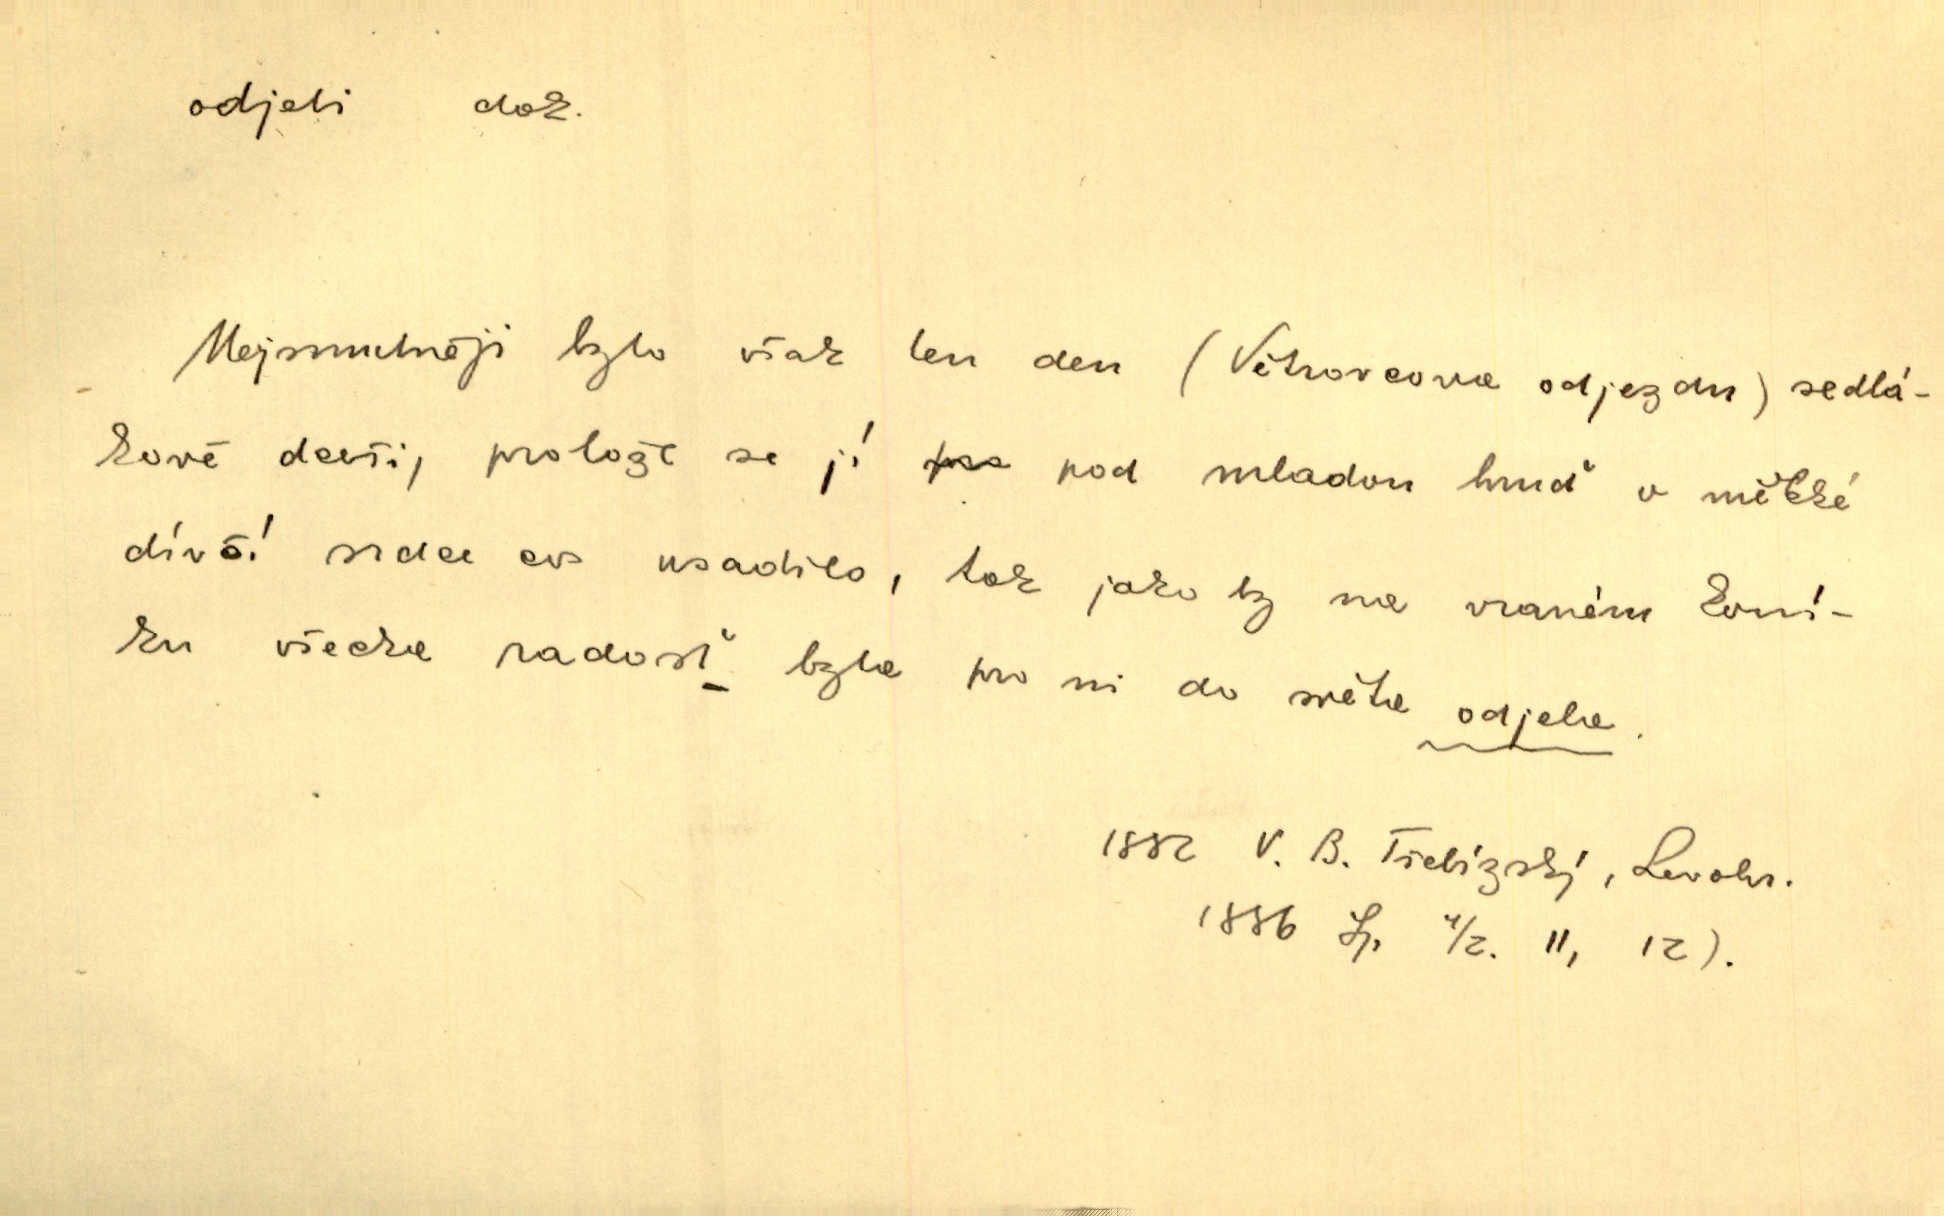 odjeti dok.
Nejsmutněji bylo však ten den (Větrovcova odjezdu) sedlá-
kově dceři, protože se jí pod mladou hruď v měkké
dívčí srdce cos usadilo, tak jako by na vraném koní-
ku všecka radosť byla pro ni do světa odjela.
1882 V. B. Třebízský, Levohr.
1886 Sp. 4/2. II, 12).